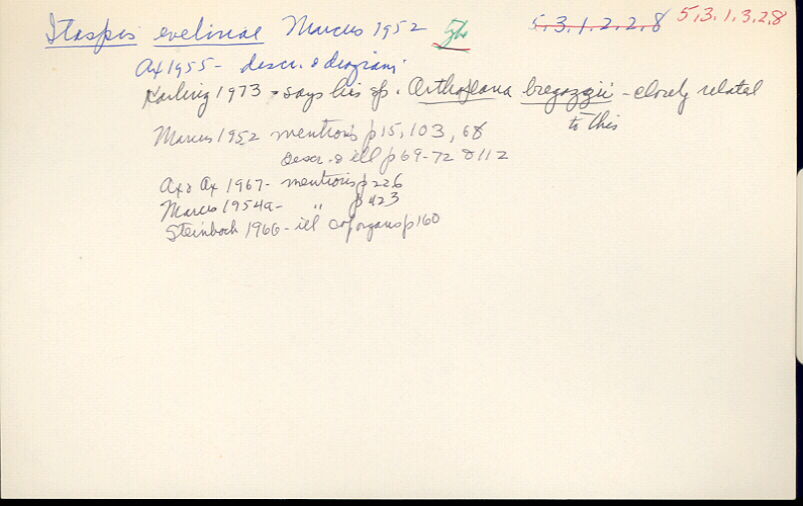 Itaspis evelinae Marcus 1952 5,3,1,2,2,8 5,3,1,3,2,8
Ax 1955 - descr. & diagram
Karling 1973 - says his sp. Orthoplana bregazzii - closely related
to this
Marcus 1952 mentions p15, 103, 68
Descr. & ill p69-72 & 112
Ax & Ax 1967 - mentions p226
Marcus 1954a - " p423
Steinböck 1966 - ill cop organs p160